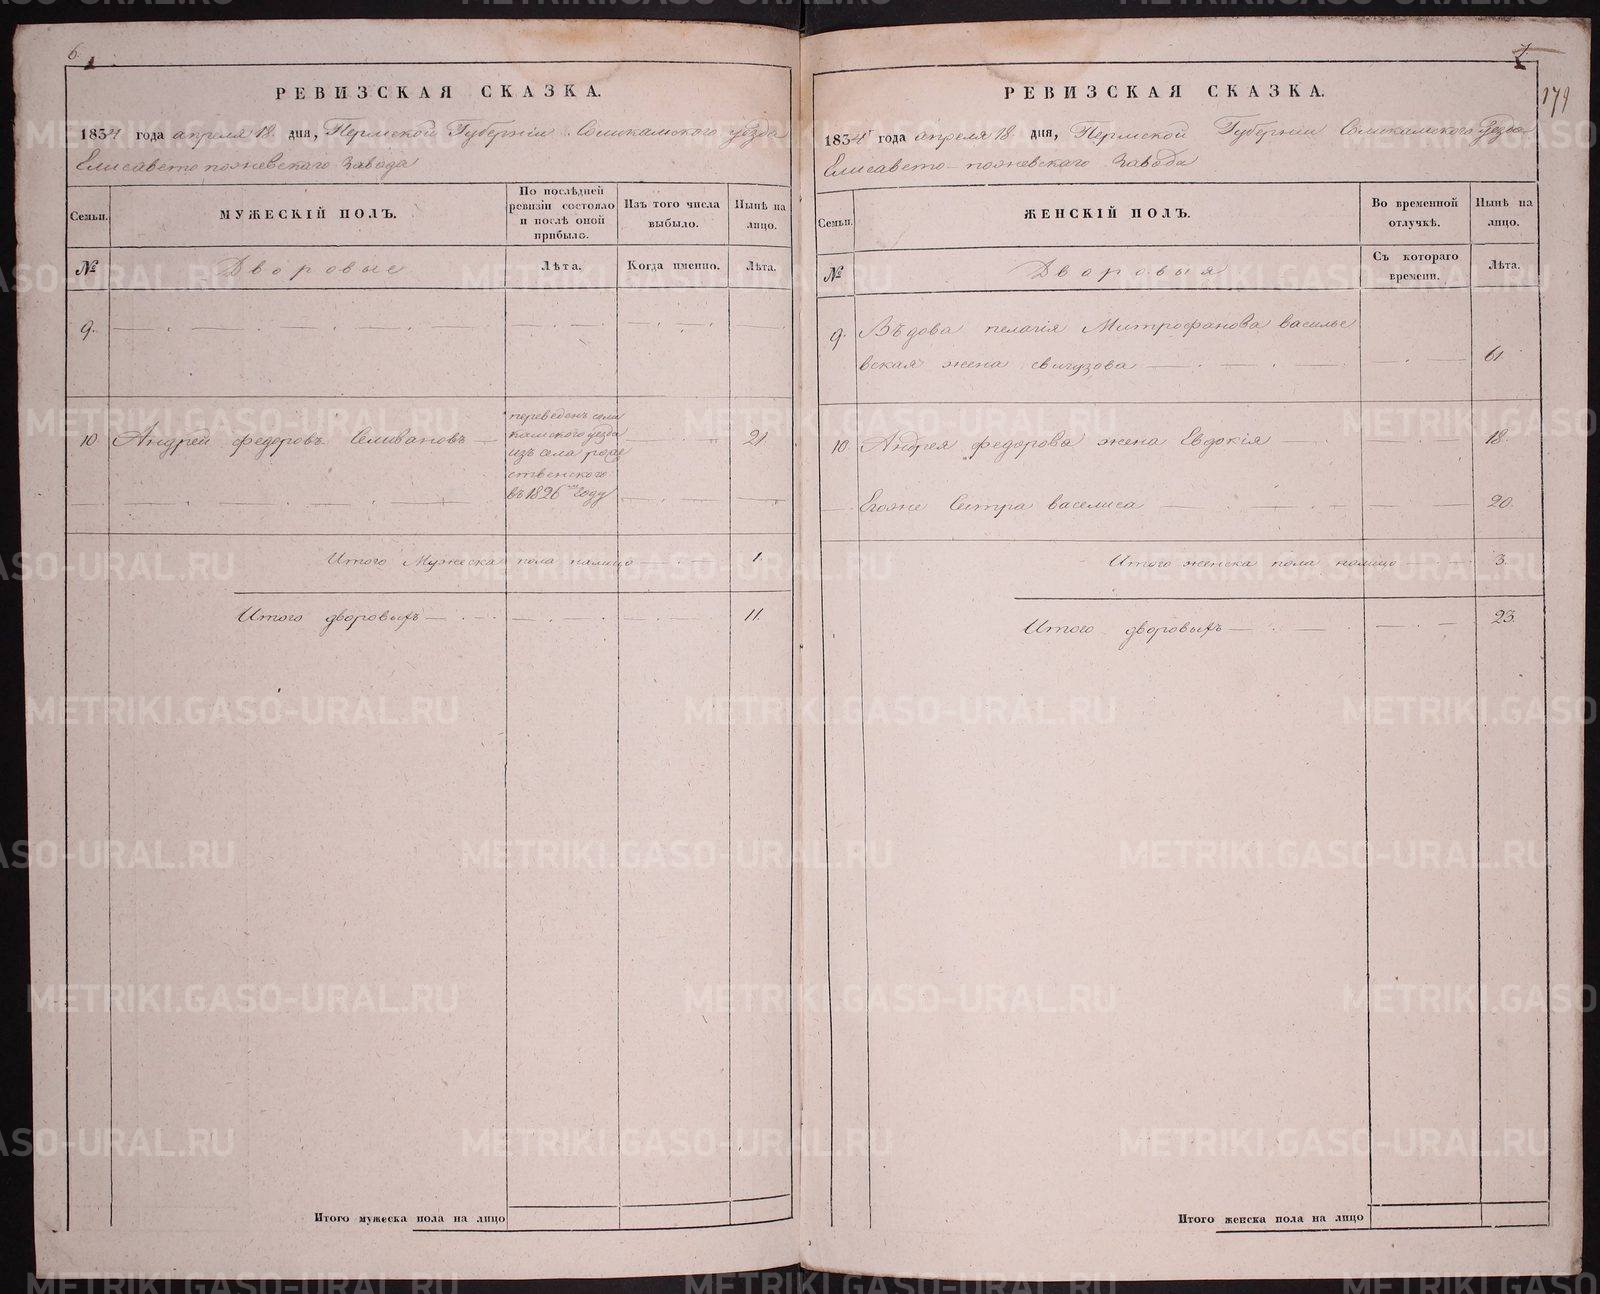 6.
РЕВИЗСКАЯ СКАЗКА.
1834 года апреля 18. дня, Пермской Губернiи Соликамского уезда
Елисавето пожевскаго Завода
Семьи.
МУЖЕСКIЙ ПОЛЪ.
По послѣдней ревизiи состояло и послѣ оной прибыло.
Изъ того числа выбыло.
Нынѣ на лицо.
№
Дворовые
Лѣта.
Когда именно.
Лѣта.
9.
10. Андрей федоровъ Селивановъ
переведенъ соли
камского уезда
изъ села рожде
ственского
въ 1826 году
21.
Итого Мужеска пола налицо 1.
Итого дворовыхъ 11.
Итого мужеска пола на лицо
7.
179
РЕВИЗСКАЯ СКАЗКА.
1834 года апреля 18 дня, Пермской Губернiи Соликамского Уезда
Елисавето-пожевскаго Завода
Семьи.
ЖЕНСКIЙ ПОЛЪ.
Во временной отлучкѣ.
Нынѣ на лицо.
№
Дворовыя
Съ котораго времени.
Лѣта.
9. Въдова пелагiя Митрофанова василье
вская жена свигузова 61.
10. Андрея федорова жена Евдокiя 18.
Егоже Сестра васелиса 20.
Итого женска пола налицо 3.
Итого дворовыхъ 23.
Итого женска пола на лицо
METRIKI.GASO-URAL.RU